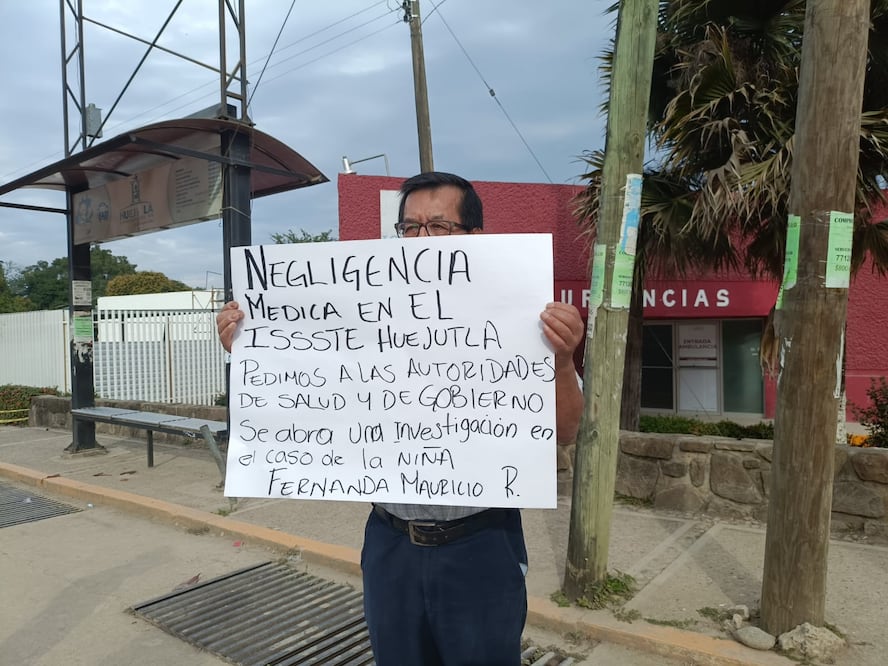 HUEJUTLA
NEGLIGENCIA
MEDICA EN EL
ISSSTE HUEJUTLA
PEDIMOS A LAS AUTORIDADES
DE SALUD Y DE GOBIERNO
Se abra una Investigación en
el caso de la NIÑA
FERNANDA MAURICIO R.
URGENCIAS
ENTRADA
AMBULANCIA
COMPRO